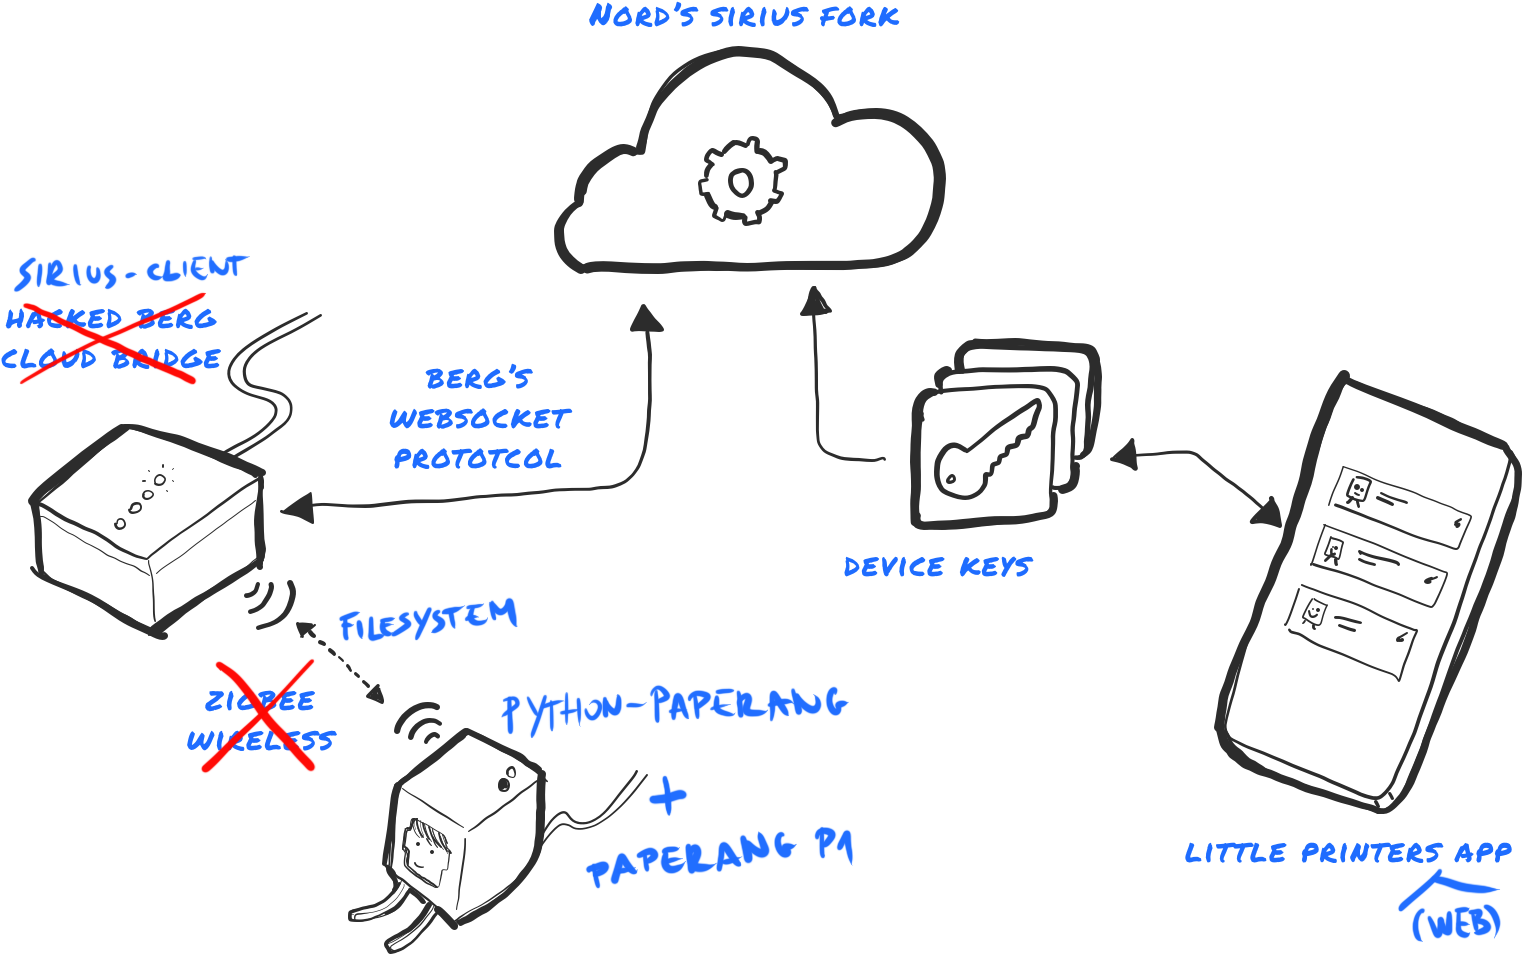 NORD'S SIRIUS FORK
SIRIUS-CLIENT
HACKED BERG
CLOUD BRIDGE
BERG'S
WEBSOCKET
PROTOTCOL
DEVICE KEYS
FILESYSTEM
ZIGBEE
WIRELESS
PYTHON-PAPERANG
+
PAPERANG P1
LITTLE PRINTERS APP
(WEB)